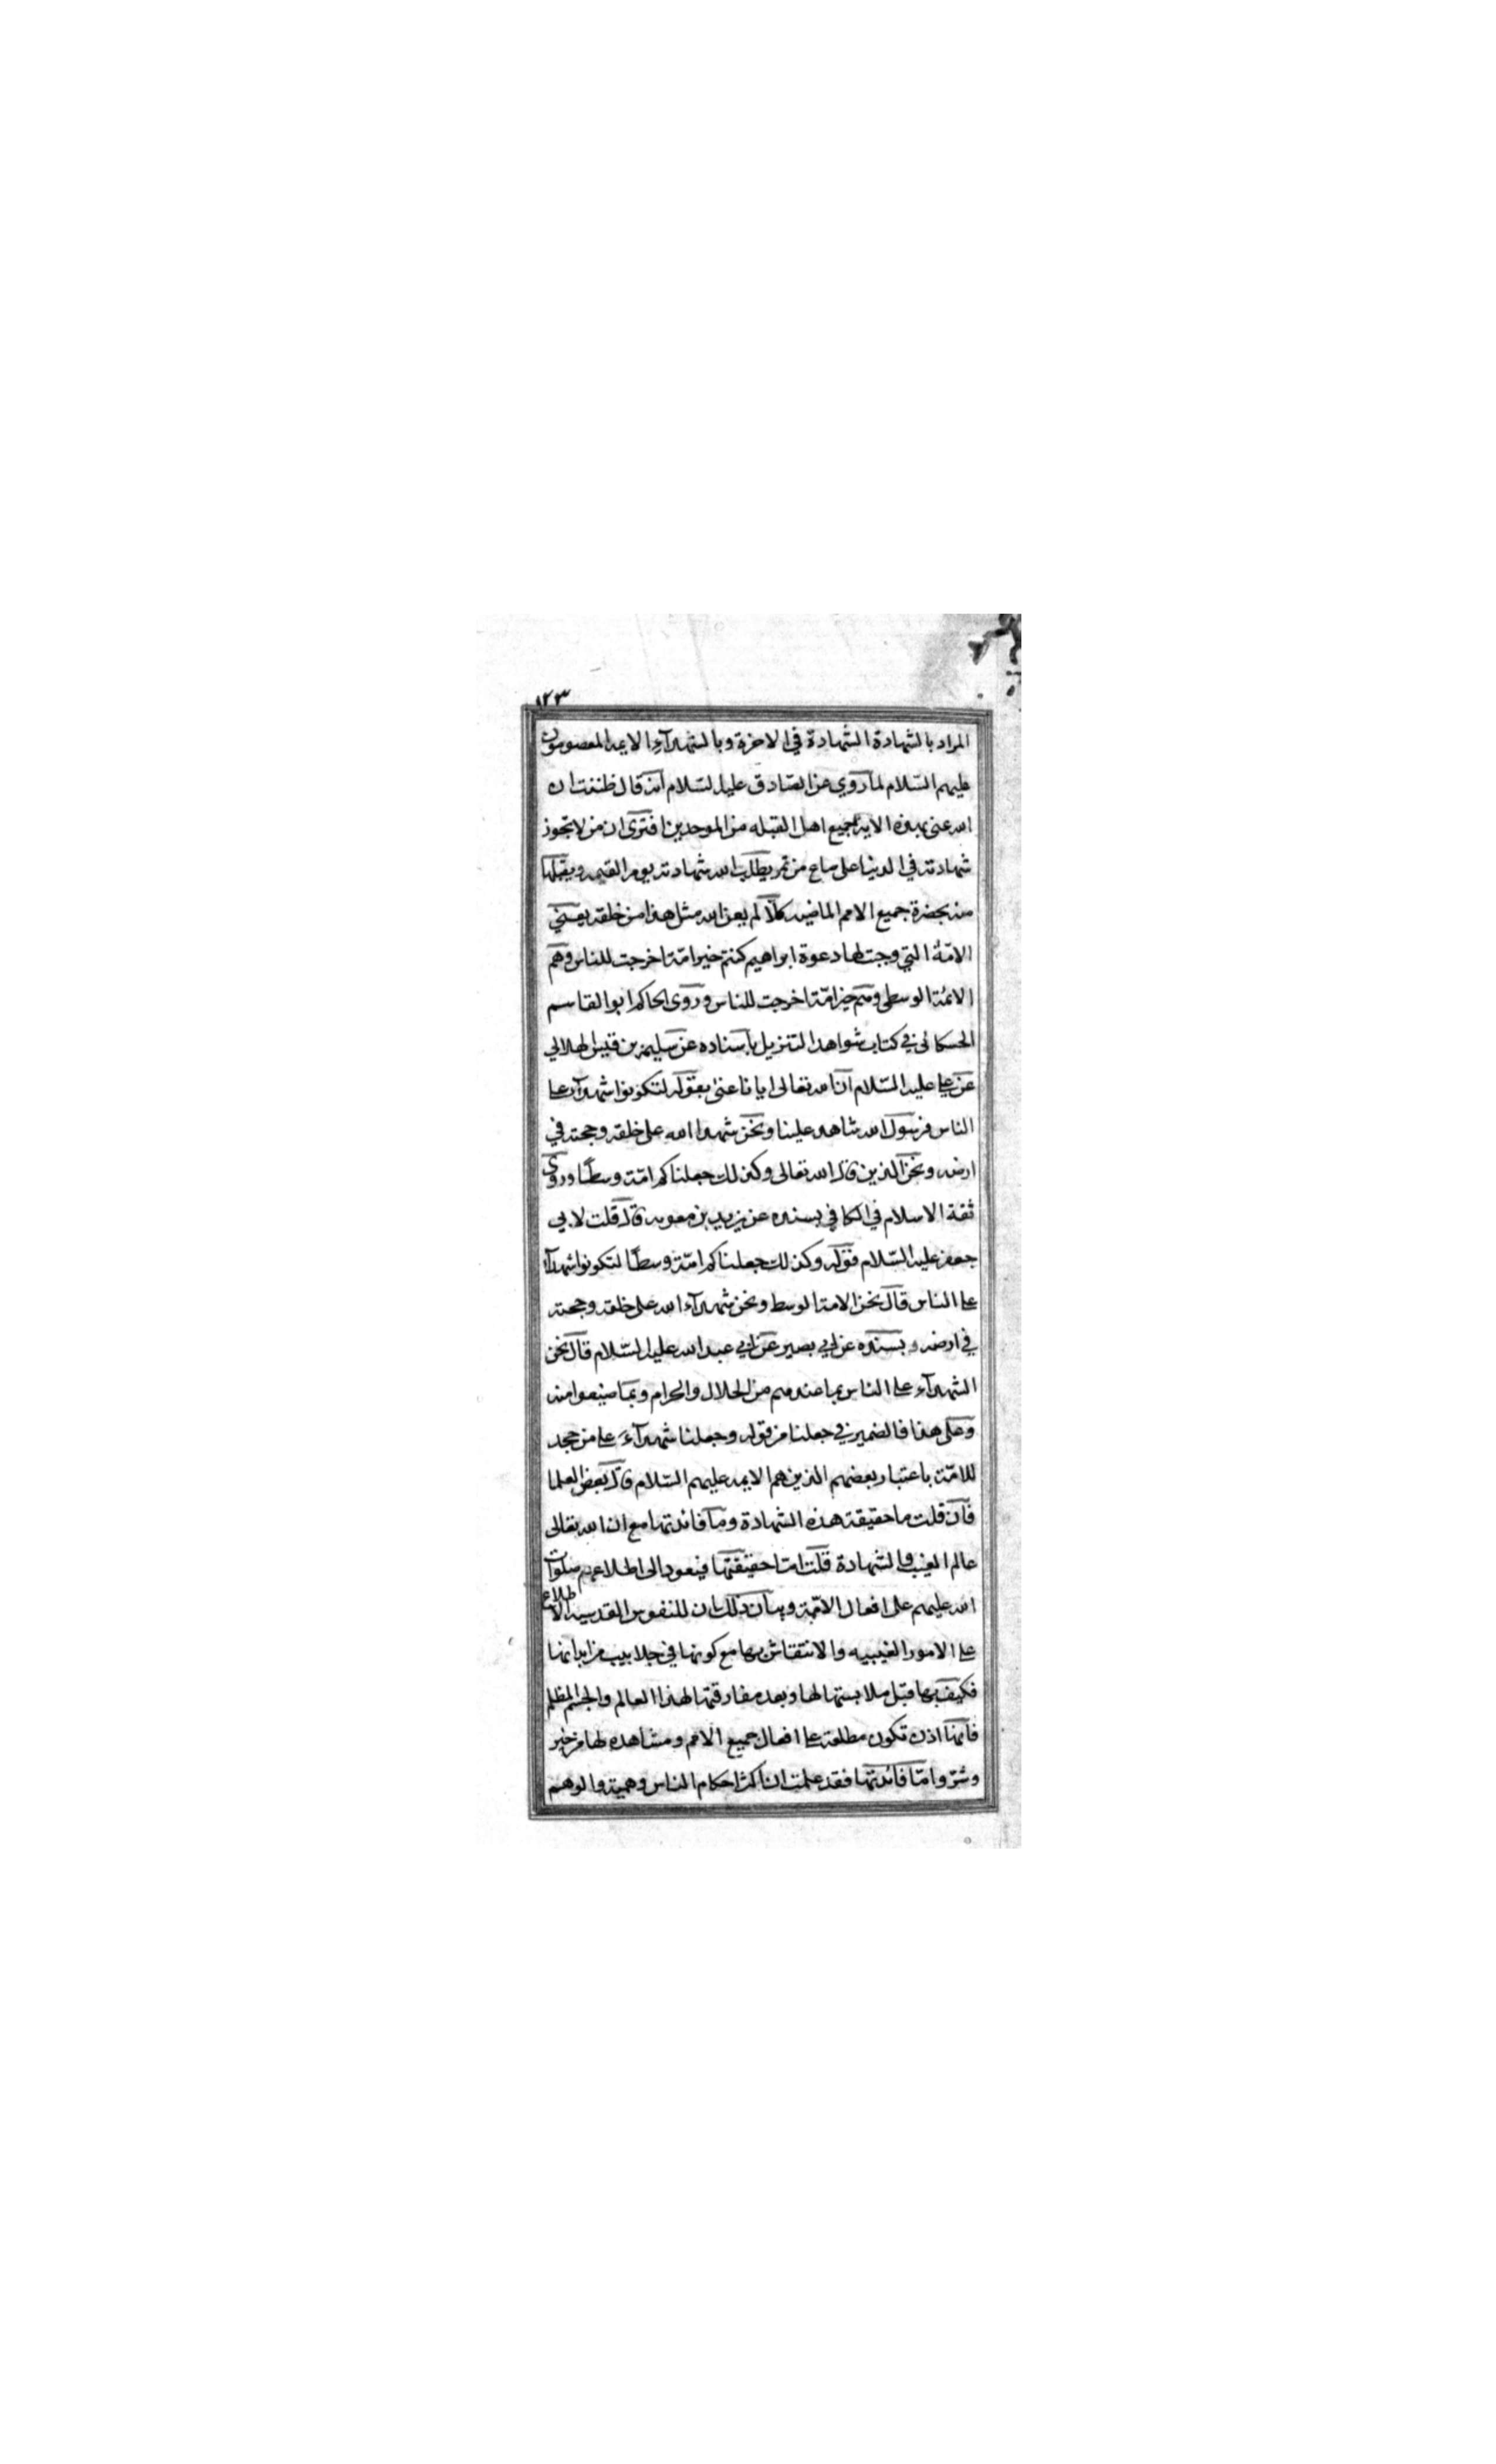 ١٢٣
المراد بالشهادة الشهادة في الاخرة وبالشهدآء الايمه المعصومون
عليهم السّلام لما روي عن الصّادق عليه السّلام انه قال ظننت ان
الله عنى بهذه الاية جميع اهل القبله من الموحدين افترى ان من لا تجوز
شهادته في الدنيا على صاع من تمر يطلب الله شهادته يوم القيمه ويقبلها
منه بحضرة جميع الامم الماضيه كلّا لم يعن الله مثل هذا من خلقه يعني
الامّة التي وجبت لها دعوة ابراهيم كنتم خير امّة اخرجت للناس وهم
الائمّة الوسطى وهم خير امّة اخرجت للناس وروى الحاكم ابوالقاسم
الحسكانى في كتاب شواهد التنزيل باسناده عن سليم بن قيس الهلالي
عن علي عليه السّلام ان الله تعالى ايانا عنى بقوله لتكونوا شهدآء على
الناس فرسول الله شاهد علينا ونحن شهدا الله على خلقه وحجته في
ارضه ونحن الذين قال الله تعالى وكذلك جعلناكم امّة وسطًا وروى
ثقة الاسلام في الكافي بسنده عن بريد بن معويه قال قلت لابي
جعفر عليه السّلام قوله وكذلك جعلناكم امّة وسطًا لتكونوا شهدآء
على الناس قال نحن الامة الوسط ونحن شهدآء الله على خلقه وحجته
في ارضه وبسنده عن ابي بصير عن ابي عبد الله عليه السّلام قال نحن
الشهدآء على الناس بما عندهم من الحلال والحرام وبما ضيعوا منه
وعلى هذا فالضمير في جعلنا من قوله وجعلنا شهدآءَ على من جحد
للامّة باعتبار بعضهم الذين هم الايمه عليهم السّلام قال بعض العلما
فان قلت ما حقيقة هذه الشهادة وما فائدتها مع ان الله تعالى
عالم الغيب والشهادة قلت امّا حقيقتها فيعود الى اطلاعهم صلوات
الله عليهم على افعال الامّة وبيان ذلك ان للنفوس القدسيه الاطلاع
على الامور الغيبيه والانتقاش بها مع كونها في جلابيب من ابدانها
فكيف بها قبل ملابستها لها وبعد مفارقتها لهذا العالم والجسم المظلم
فانّها اذن تكون مطلعة على افعال جميع الامم ومشاهده لها من خير
وشرّ وامّا فائدتها فقد علمت ان اكثر احكام الناس وهمية والوهم